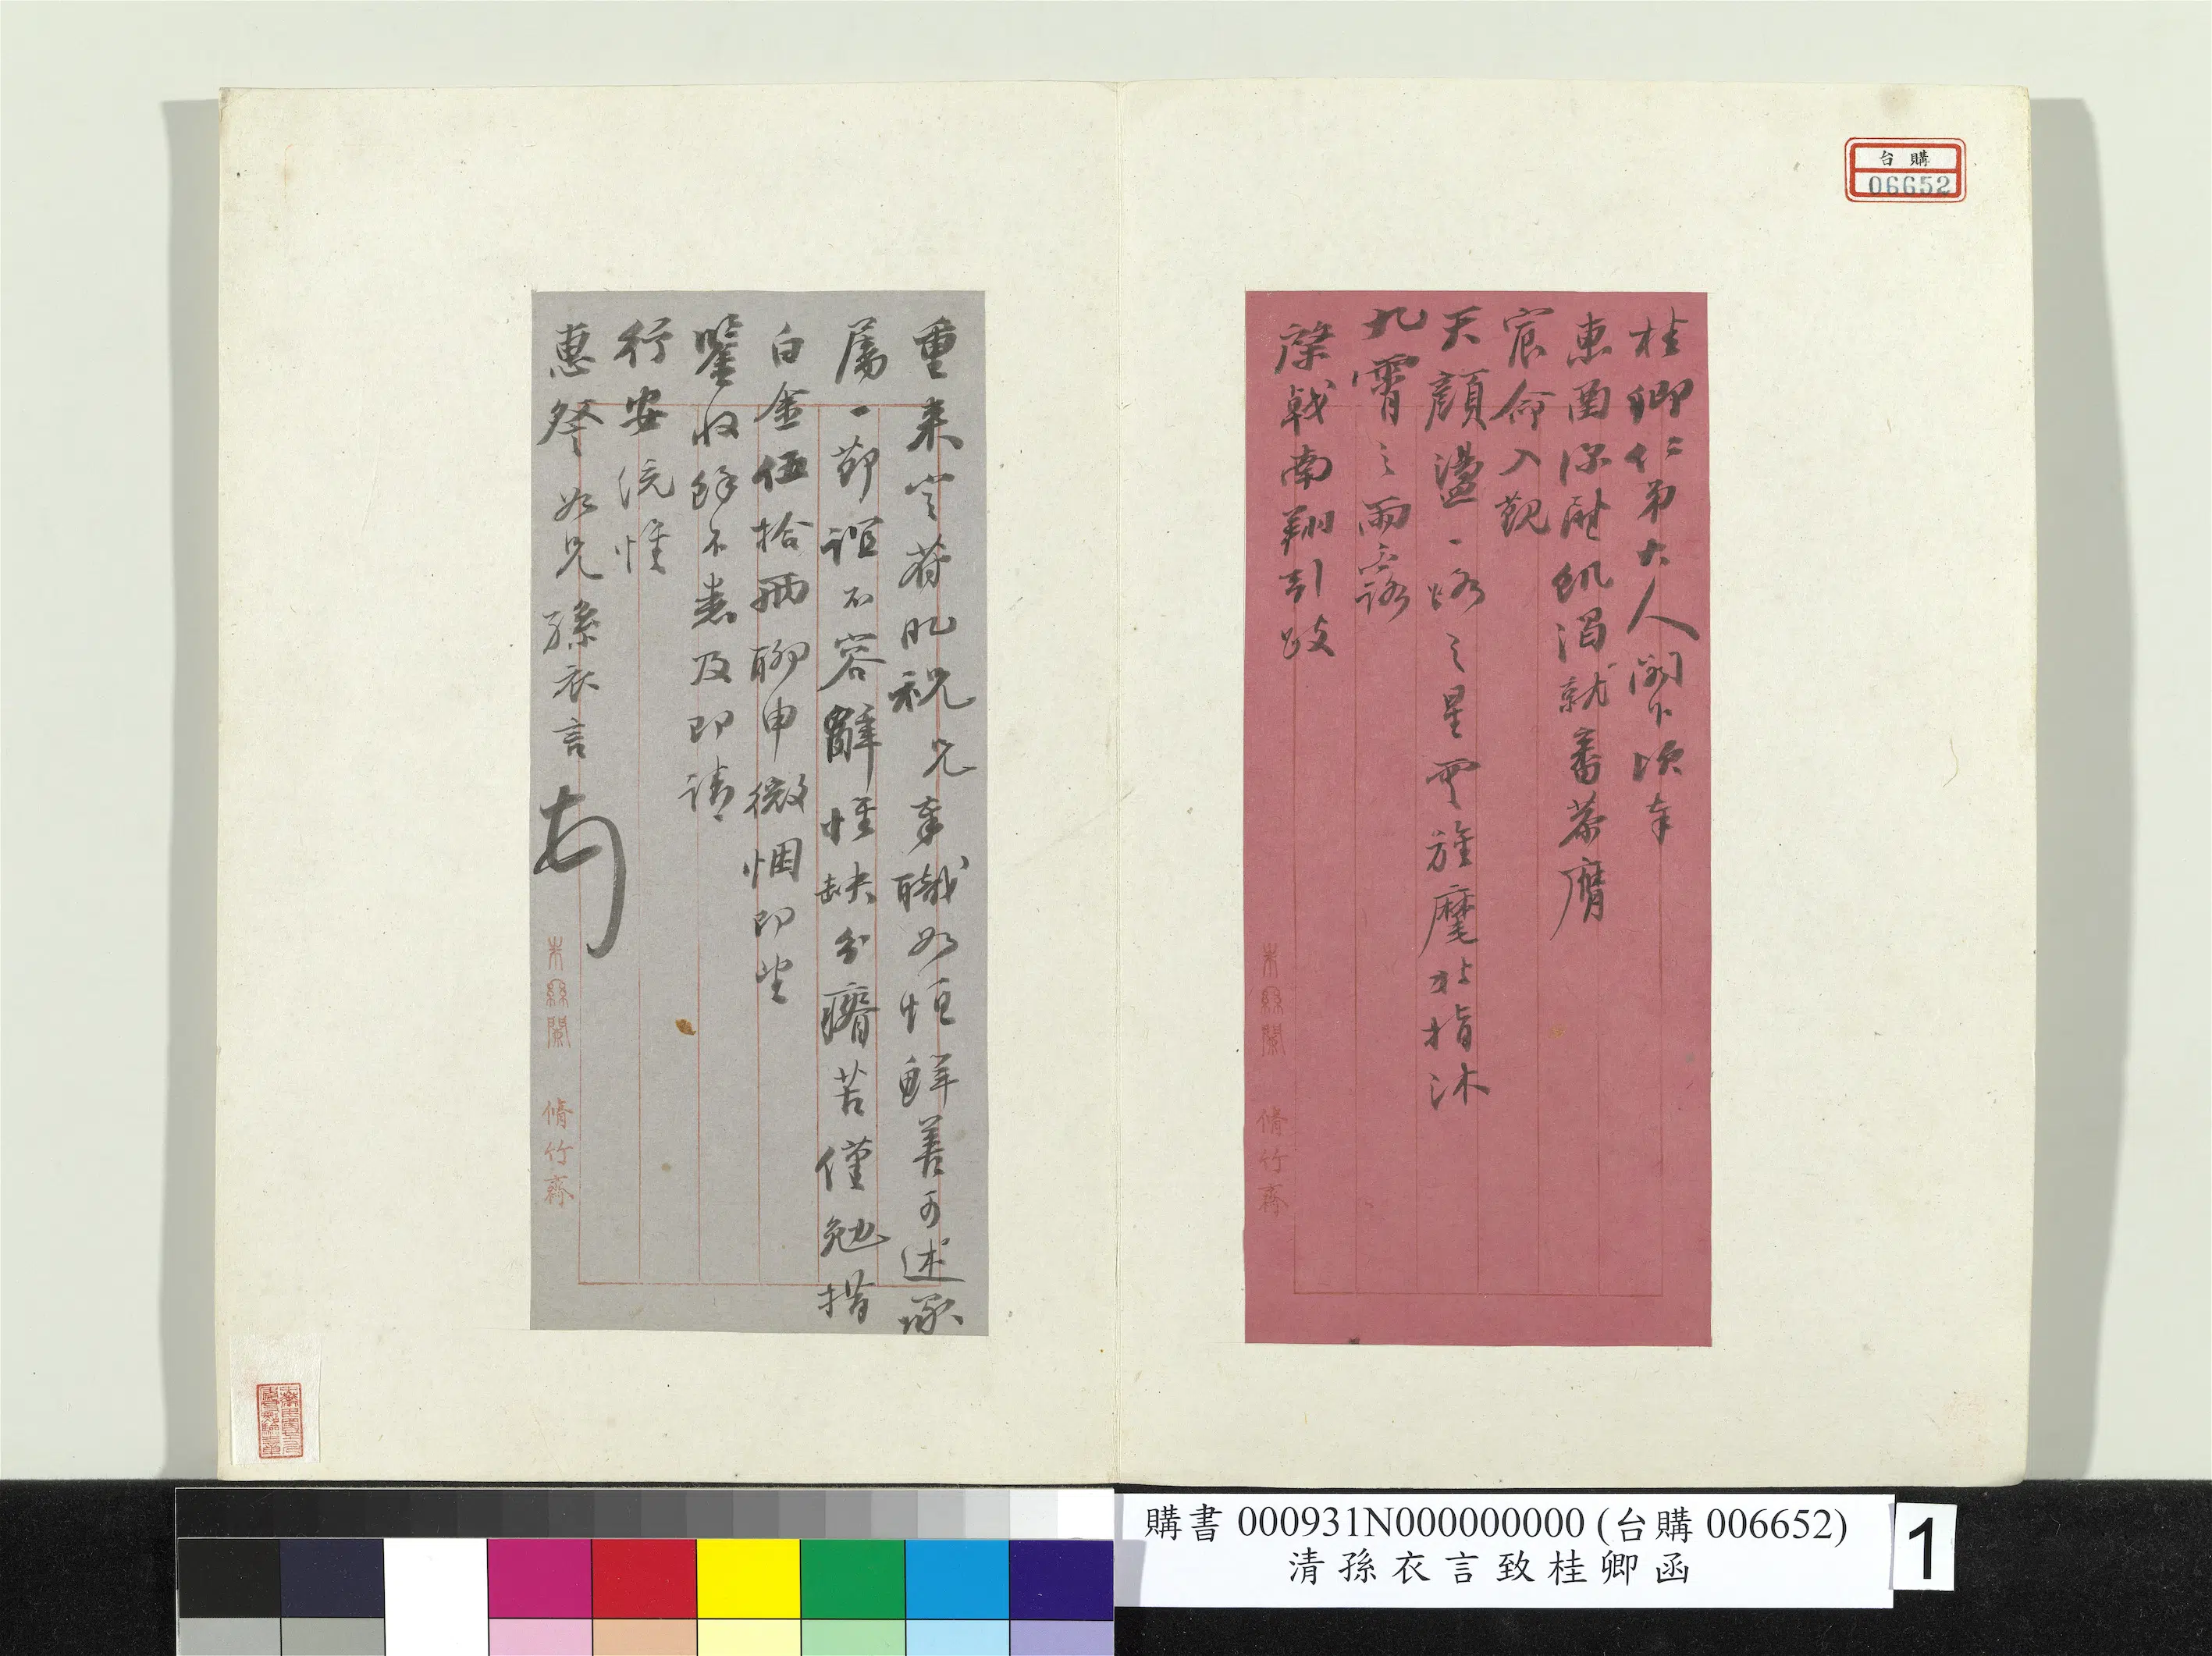 台購
06652
桂卿仁弟大人閣下頃奉
惠函深耐飢渴就審恭膺
宸命入覲
天顏盪一路之星雲旌麾北指沐
九霄之雨露
棨戟南翔引跂
朱絲闌 脩竹齋
重来定符肊祝兄奉職如恒鮮善可述承
屬一節誼不容辭惟缺分瘠苦僅勉措
白金伍拾兩聊申微悃即望
鑒收餘不悉及即請
行安統惟
惠詧 如兄孫衣言
朱絲闌 脩竹齋
購書 000931N000000000 (台購 006652)
清孫衣言致桂卿函
1